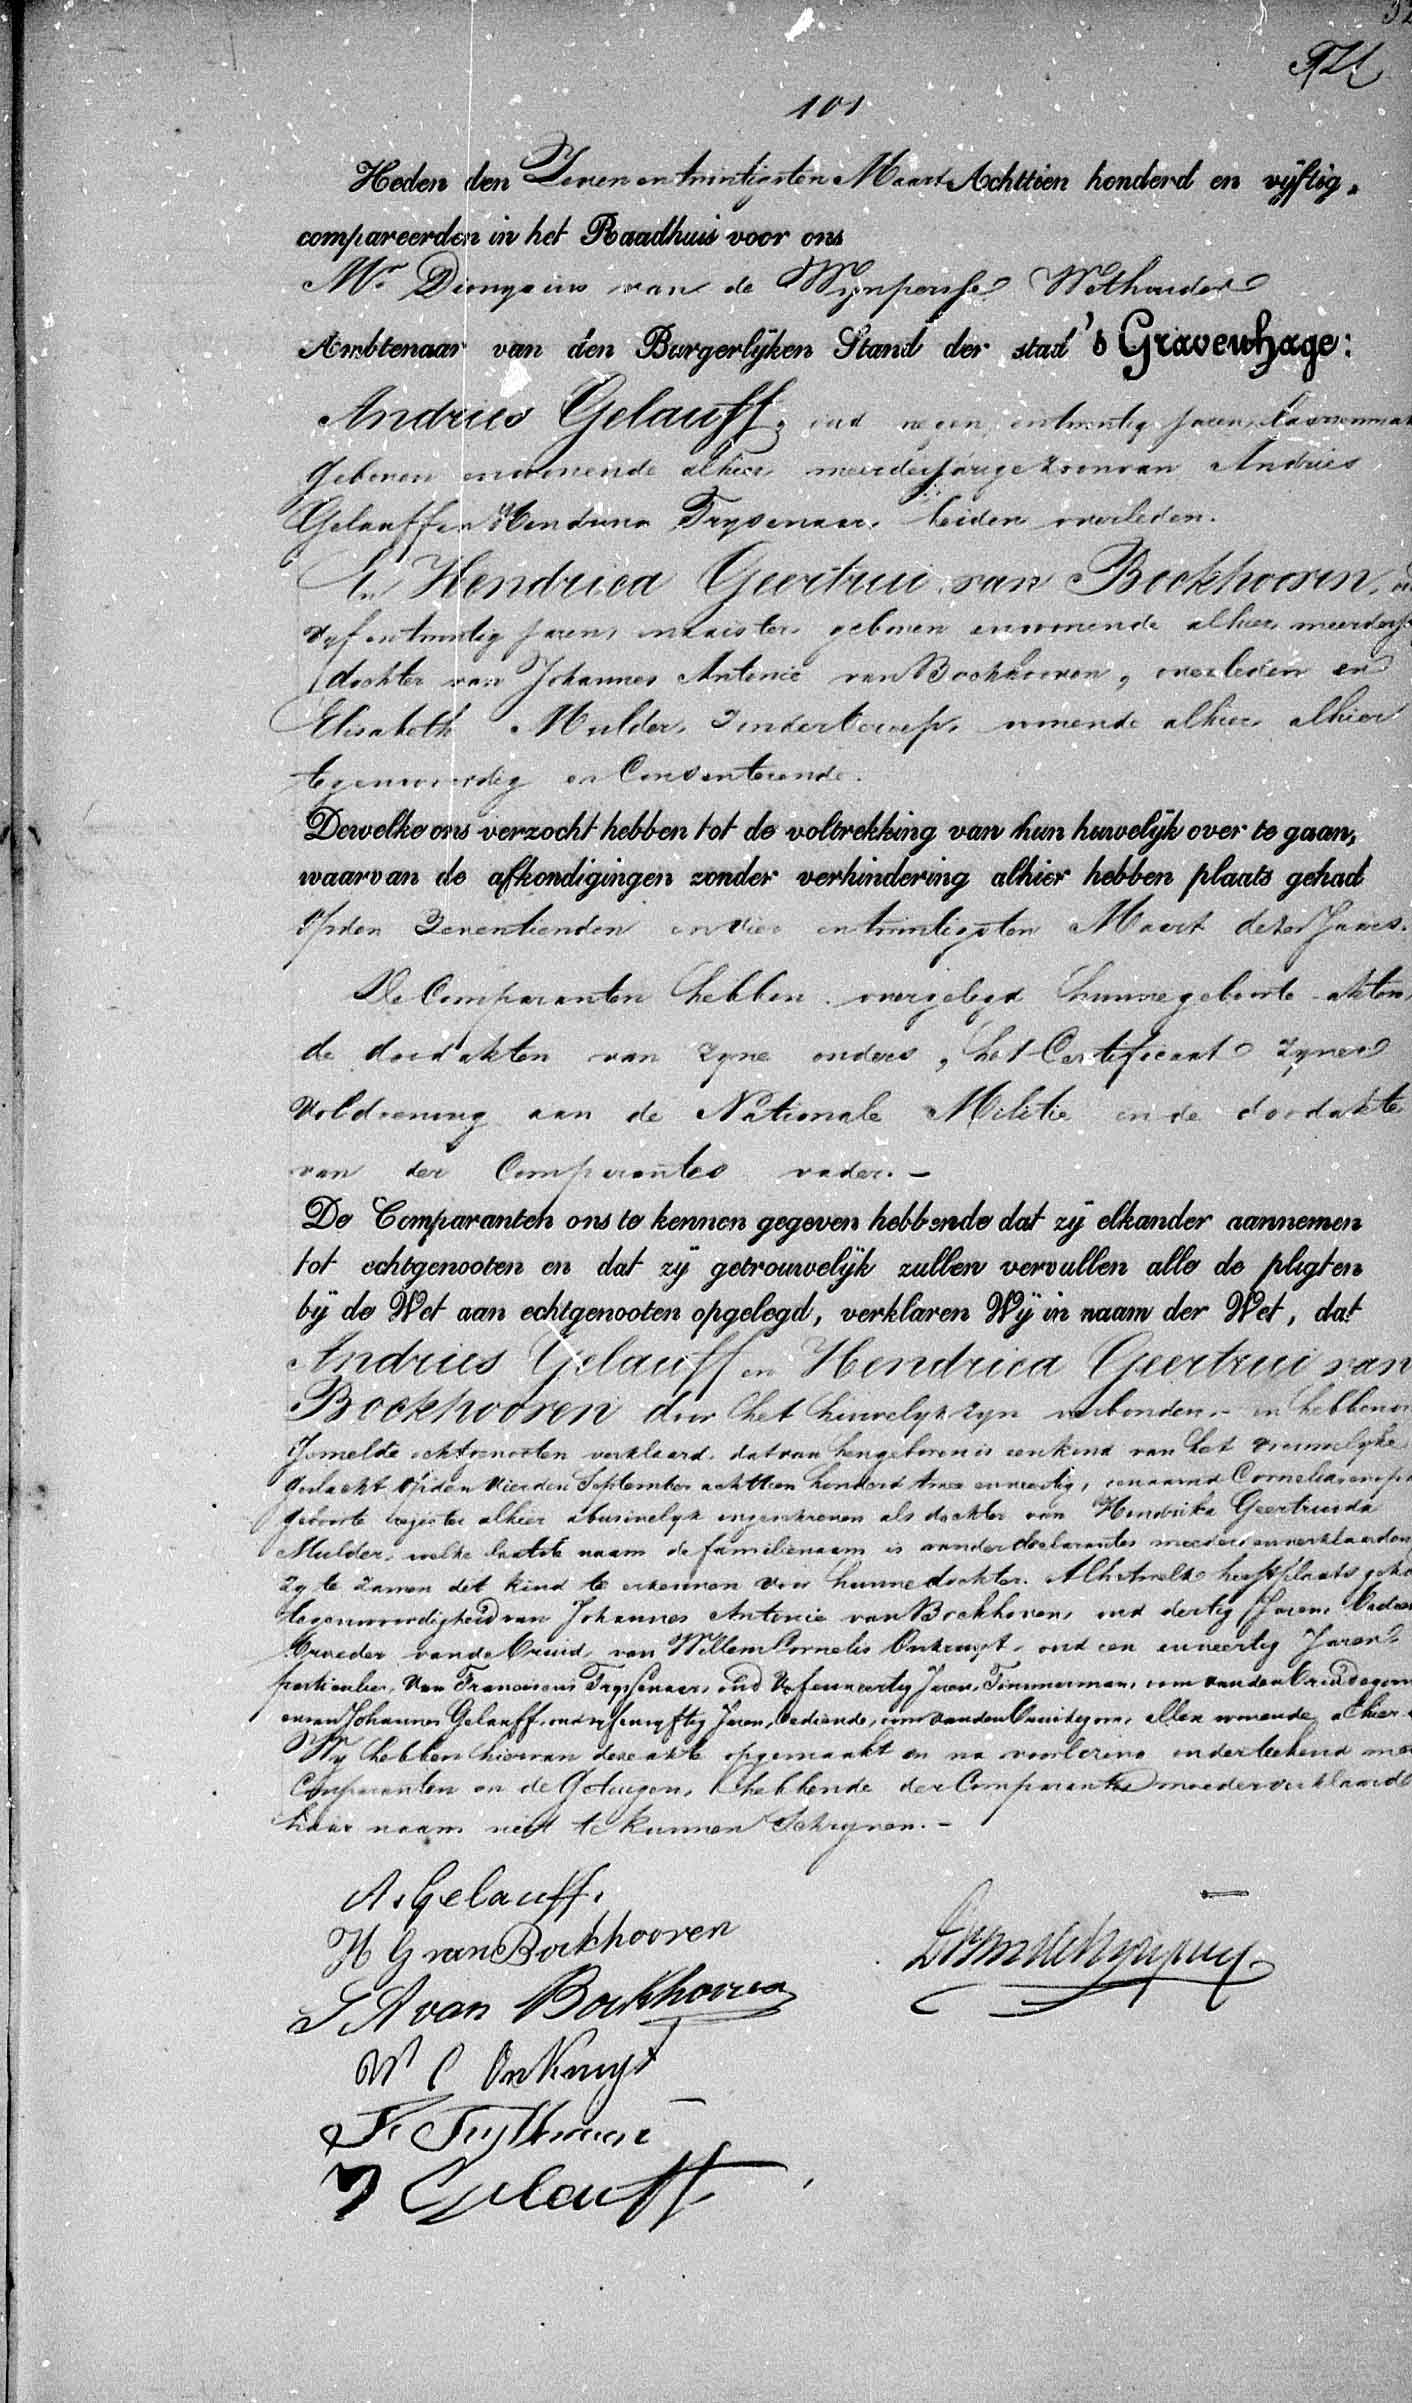 32
101
Heden den Zeven en twintigsten Maart Achttien honderd en vijftig,
compareerden in het Raadhuis voor ons
Mr. Dionysius van de Wijnpersse Wethouder
Ambtenaar van den Burgerlijken Stand der stad 's Gravenhage:
Andries Gelauff, oud negen en twintig jaren,
geboren en wonende alhier, meerderjarige zoon van Andries
Gelauff en Trysenaar, beiden overleden.
En Hendrica Geertrui van Bockhooren,
vyf en twintig jaren, naaister, geboren en wonende alhier, meerderj
dochter van Johannes Antonie van Bockhooren, overleden en
Elisabeth Mulder, zonder beroep, wonende alhier, alhier
tegenwoordig en Consenterende.
Dewelke ons verzocht hebben tot de voltrekking van hun huwelijk over te gaan,
waarvan de afkondigingen zonder verhindering alhier hebben plaats gehad
Op den Zeventienden en vier en twintigsten Maart dezes Jaars.
De Comparanten hebben overgelegd hunne geboorte-akten,
de doodakten van zyne ouders, het Certificaat zyner
voldoening aan de Nationale Militie en de doodakte
van der Comparantes vader.-
De Comparanten ons te kennen gegeven hebbende dat zij elkander aannemen
tot echtgenooten en dat zij getrouwelijk zullen vervullen alle de pligten
bij de Wet aan echtgenooten opgelegd, verklaren Wij in naam der Wet, dat
Andries Gelauff en Hendrica Geertrui van
Bockhooren door het huwelyk zyn verbonden.- en hebben
gemelde echtgenooten verklaard, dat van hen geboren is een kind van het vrouwelyke
geslacht op den vierden September achttien honderd twee en veertig, genaamd Cornelia,
geboorte register alhier abusivelyk ingeschreven als dochter van Hendrika Geertruida
Mulder, welke laatste naam de familienaam is van der declarantes moeder, en verklaarden
zy te zamen dit kind te erkennen voor hunne dochter. Al hetwelk heeft plaats geha
tegenwoordigheid van Johannes Antonie van Bockhooren, oud dertig Jaren,
broeder van de bruid, van Willem Cornelis Onkruyt, oud een en veertig Jaren,
particulier, van Franciscus Tryssenaar, oud Vyf en veertig Jaren, Timmerman, oom van den bruidegom
en van Johannes Gelauff, oud vyf en vyftig Jaren, bediende, oom van den bruidegom, allen wonende alhier.
Wy hebben hiervan deze akte opgemaakt en na voorlezing onderteekend met
Comparanten en de Getuigen, hebbende der Comparantes moeder verklaard
haar naam niet te kunnen Schryven.-
A. Gelauff.
H G van Bockhooren
J A van Bockhooren
W C Onkruyt
J Gelauff